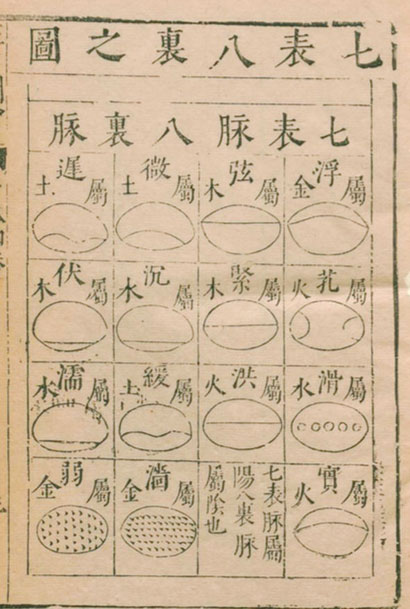 七表八裏之圖
七表脉八裏脉
浮
屬金
芤
屬火
滑
屬水
實
屬火
弦
屬木
緊
屬木
洪
屬火
七表脉屬
陽八裏脉
屬陰也
微
屬土
沉
屬水
緩
屬土
濇
屬金
遲
屬土
伏
屬木
濡
屬水
弱
屬金